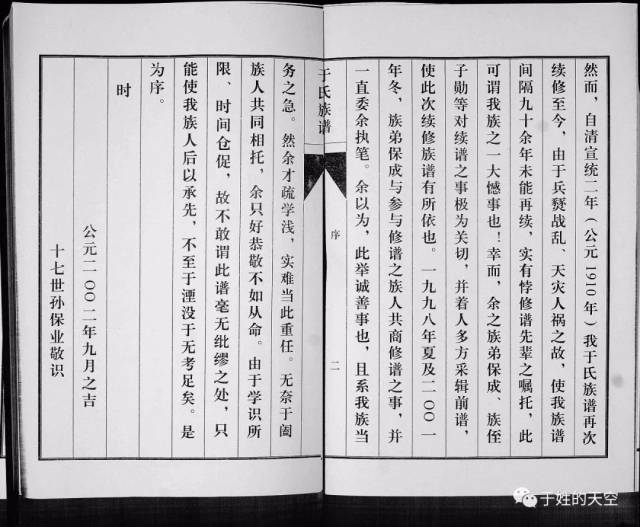 然而，自清宣统二年（公元1910年）我于氏族谱再次
续修至今，由于兵燹战乱、天灾人祸之故，使我族谱
间隔九十余年未能再续，实有悖修谱先辈之嘱托，此
可谓我族之一大憾事也！幸而，余之族弟保成、族侄
子勋等对续谱之事极为关切，并着人多方采辑前谱，
使此次续修族谱有所依也。一九九八年夏及二〇〇一
年冬，族弟保成与参与修谱之族人共商修谱之事，并
一直委余执笔。余以为，此举诚善事也，且系我族当
于氏族谱
序
二
务之急。然余才疏学浅，实难当此重任。无奈于阖
族人共同相托，余只好恭敬不如从命。由于学识所
限、时间仓促，故不敢谓此谱毫无纰缪之处，只
能使我族人后以承先，不至于湮没于无考足矣。是
为序。
时
公元二〇〇二年九月之吉
十七世孙保业敬识
于姓的天空